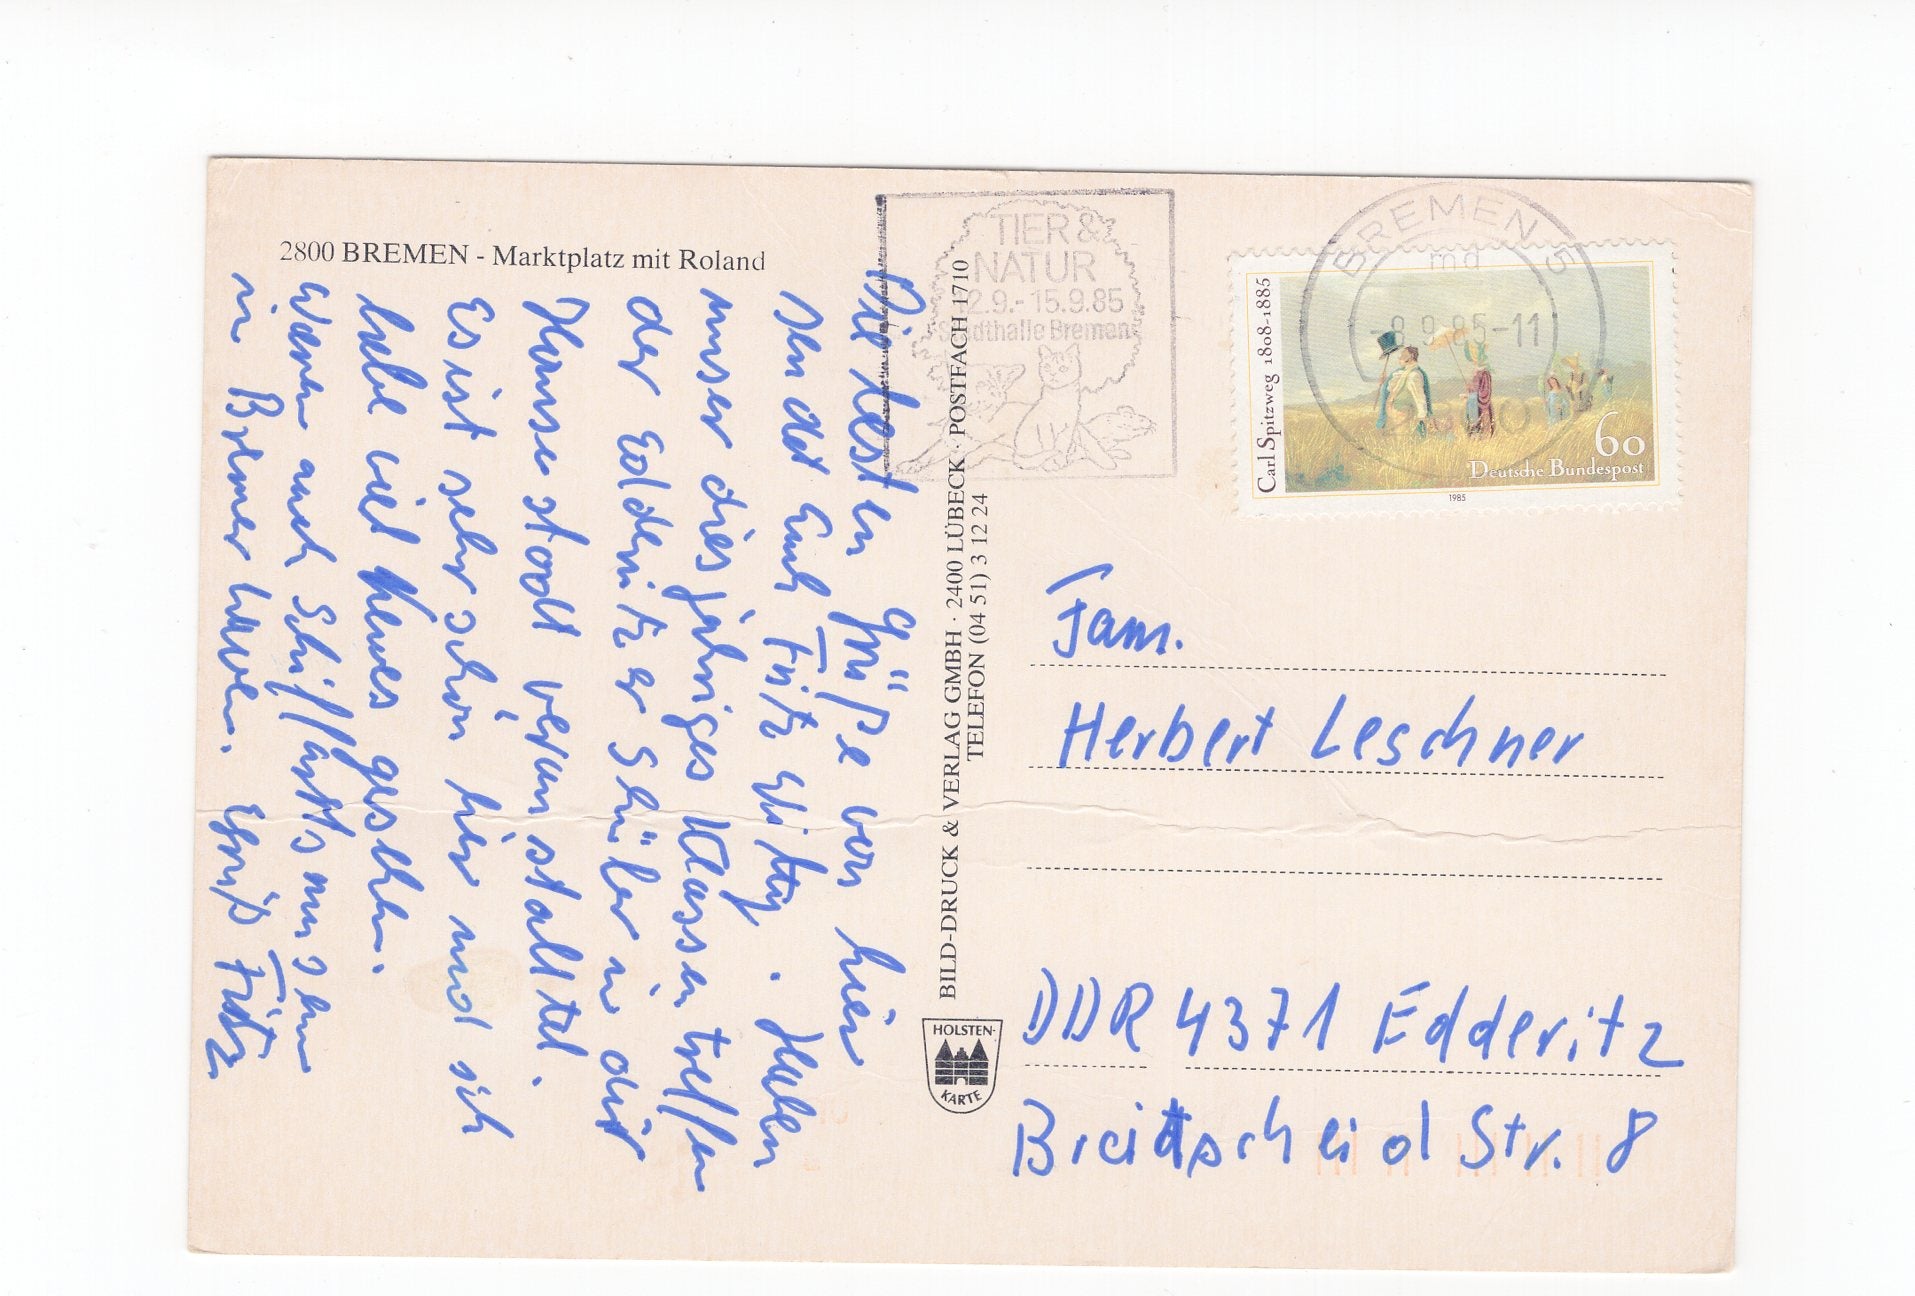 2800 BREMEN - Marktplatz mit Roland
Die besten Grüße von hier
sendet Euch Fritz . Haben
unser diesjähriges Klassentreffen
der Edderitzer Schüler in dieser
Hansestadt veranstaltet.
Es ist sehr schön hier und ich
habe viel Neues gesehen.
Waren auch Schiffahrtsmuseum
in Bremerhaven. Gruß Fritz
BILD-DRUCK & VERLAG GMBH · 2400 LÜBECK · POSTFACH 1710
TELEFON (04 51) 3 12 24
HOLSTEN-
KARTE
TIER &
NATUR
12.9.-15.9.85
Stadthalle Bremen
BREMEN 5
md
-8.9.85-11
2800
Carl Spitzweg 1808-1885
60
Deutsche Bundespost
1985
Fam.
Herbert Leschner
DDR 4371 Edderitz
Breitscheid Str. 8